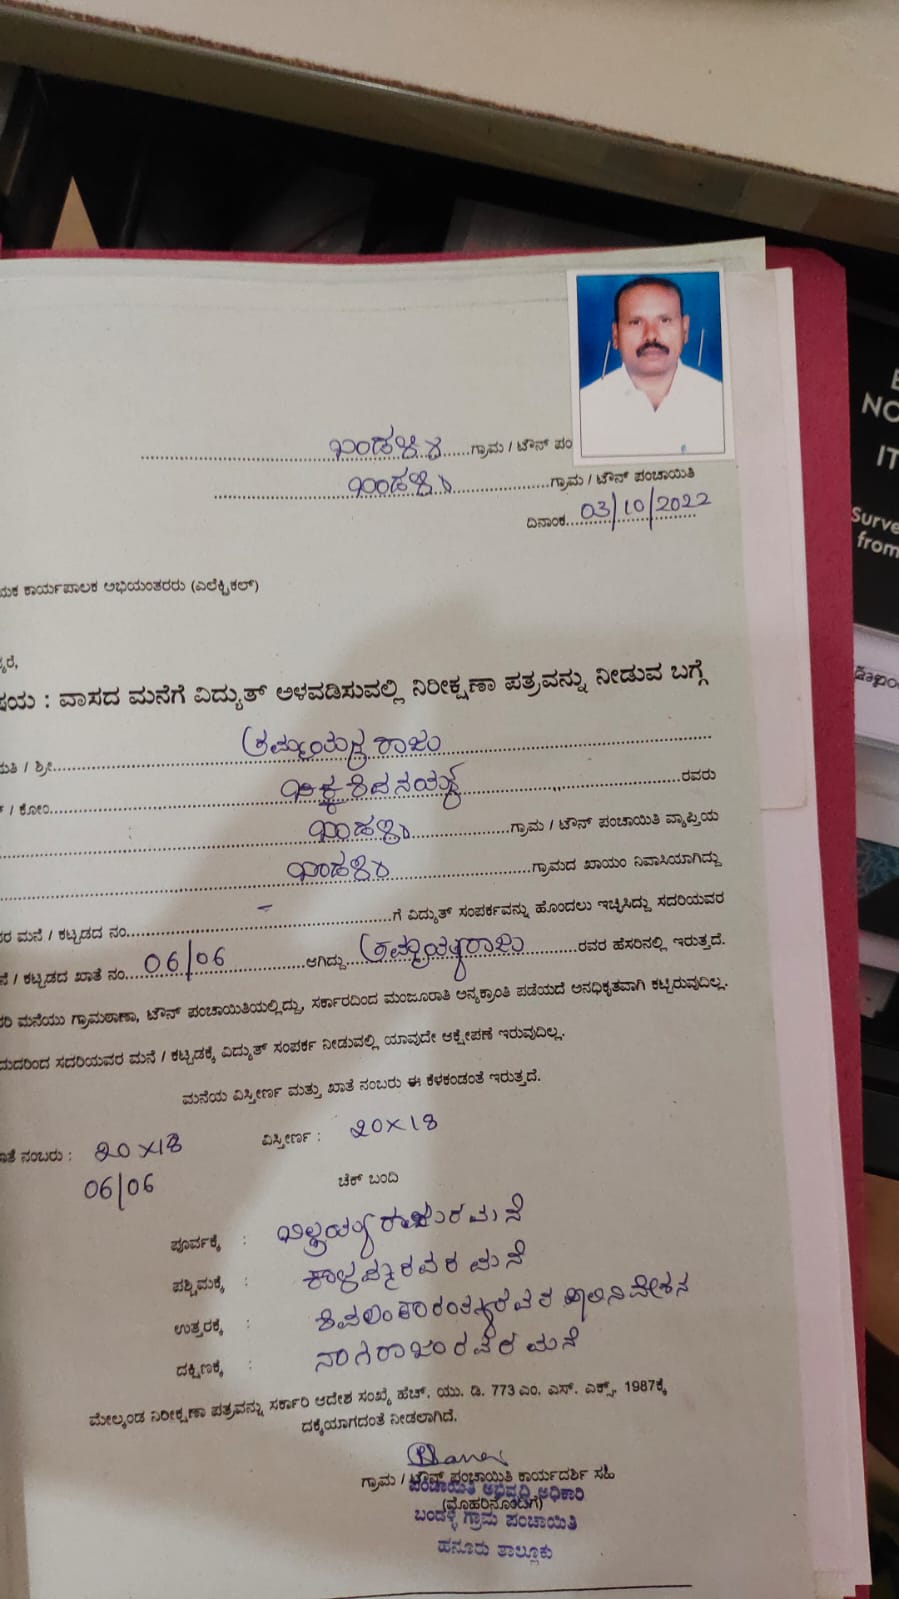 ಬಂಡಳ್ಳಿ ಗ್ರಾಮ / ಟೌನ್ ಪಂ
ಬಂಡಳ್ಳಿ ಗ್ರಾಮ / ಟೌನ್ ಪಂಚಾಯಿತಿ
ದಿನಾಂಕ. 03/10/2022
ಯಕ ಕಾರ್ಯಪಾಲಕ ಅಭಿಯಂತರರು (ಎಲೆಕ್ಟ್ರಿಕಲ್)
ರೆ,
ಷಯ : ವಾಸದ ಮನೆಗೆ ವಿದ್ಯುತ್ ಅಳವಡಿಸುವಲ್ಲಿ ನಿರೀಕ್ಷಣಾ ಪತ್ರವನ್ನು ನೀಡುವ ಬಗ್ಗೆ
ಮತಿ / ಶ್ರೀ
/ ಕೋಂ ರವರು
ಬಂಡಳ್ಳಿ ಗ್ರಾಮ / ಟೌನ್ ಪಂಚಾಯಿತಿ ವ್ಯಾಪ್ತಿಯ
ಬಂಡಳ್ಳಿ ಗ್ರಾಮದ ಖಾಯಂ ನಿವಾಸಿಯಾಗಿದ್ದು
ರ ಮನೆ / ಕಟ್ಟಡದ ನಂ. - ಗೆ ವಿದ್ಯುತ್ ಸಂಪರ್ಕವನ್ನು ಹೊಂದಲು ಇಚ್ಛಿಸಿದ್ದು ಸದರಿಯವರ
ನೆ / ಕಟ್ಟಡದ ಖಾತೆ ನಂ. 06/06 ಆಗಿದ್ದು ರವರ ಹೆಸರಿನಲ್ಲಿ ಇರುತ್ತದೆ.
ರಿ ಮನೆಯು ಗ್ರಾಮಠಾಣಾ, ಟೌನ್ ಪಂಚಾಯಿತಿಯಲ್ಲಿದ್ದು, ಸರ್ಕಾರದಿಂದ ಮಂಜೂರಾತಿ ಅನ್ಯಕ್ರಾಂತಿ ಪಡೆಯದೆ ಅನಧಿಕೃತವಾಗಿ ಕಟ್ಟಿರುವುದಿಲ್ಲ.
ದುದರಿಂದ ಸದರಿಯವರ ಮನೆ / ಕಟ್ಟಡಕ್ಕೆ ವಿದ್ಯುತ್ ಸಂಪರ್ಕ ನೀಡುವಲ್ಲಿ ಯಾವುದೇ ಆಕ್ಷೇಪಣೆ ಇರುವುದಿಲ್ಲ.
ಮನೆಯ ವಿಸ್ತೀರ್ಣ ಮತ್ತು ಖಾತೆ ನಂಬರು ಈ ಕೆಳಕಂಡಂತೆ ಇರುತ್ತದೆ.
ಾತೆ ನಂಬರು : 20×18 ವಿಸ್ತೀರ್ಣ : 20×18
06/06
ಚೆಕ್ ಬಂದಿ
ಪೂರ್ವಕ್ಕೆ : ಮನೆ
ಪಶ್ಚಿಮಕ್ಕೆ : ಮನೆ
ಉತ್ತರಕ್ಕೆ :
ದಕ್ಷಿಣಕ್ಕೆ : ನಾಗರಾಜುರವರ ಮನೆ
ಮೇಲ್ಕಂಡ ನಿರೀಕ್ಷಣಾ ಪತ್ರವನ್ನು ಸರ್ಕಾರಿ ಆದೇಶ ಸಂಖ್ಯೆ ಹೆಚ್. ಯು. ಡಿ. 773 ಎಂ. ಎಸ್. ಎಕ್ಸ್, 1987ಕ್ಕೆ
ದಕ್ಕೆಯಾಗದಂತೆ ನೀಡಲಾಗಿದೆ.
ಗ್ರಾಮ / ಟೌನ್ ಪಂಚಾಯಿತಿ ಕಾರ್ಯದರ್ಶಿ ಸಹಿ
ಪಂಚಾಯಿತಿ ಅಭಿವೃದ್ಧಿ ಅಧಿಕಾರಿ
(ಮೊಹರಿನೊಂದಿಗೆ)
ಬಂಡಳ್ಳಿ ಗ್ರಾಮ ಪಂಚಾಯಿತಿ
ಹನೂರು ತಾಲ್ಲೂಕು
NO
IT
Surve
from